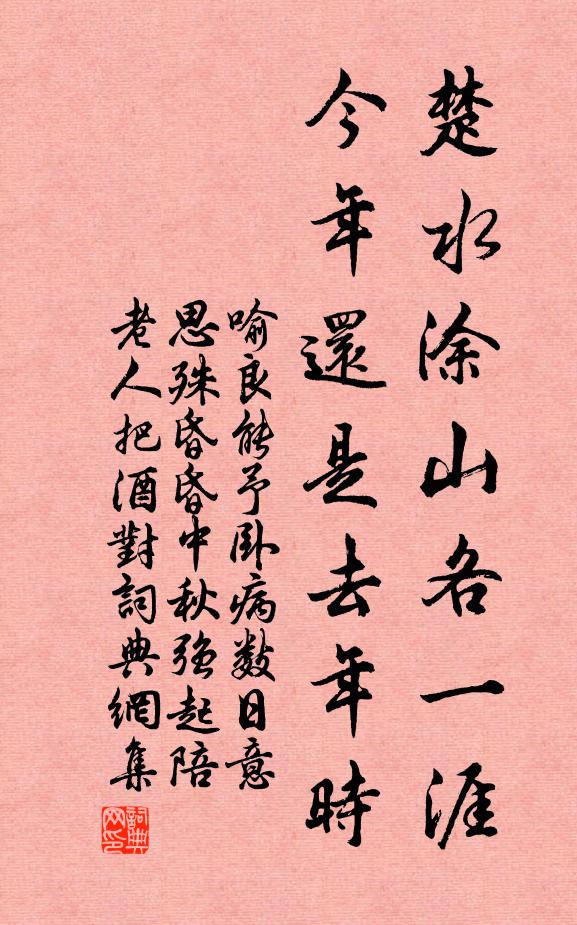 楚水涂山各一涯
今年還是去年時
喻良能予卧病数日意
思殊昏昏中秋強起陪
老人把酒對詞典網集
詞典
网印